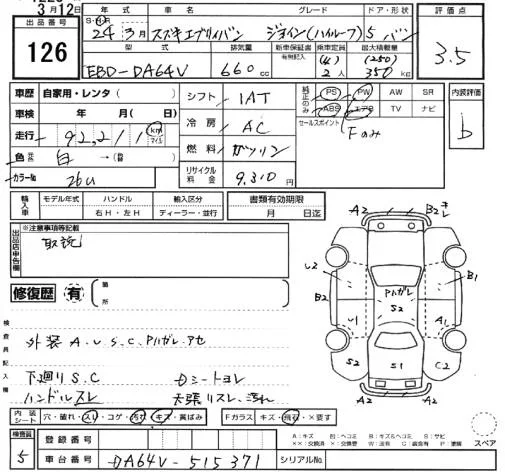 3月12日
出品番号
126
年式 車名 グレード ドア・形状
S・H 24年3月 スズキエブリィバン ジョイン(ハイルーフ) 5 バン
型式 排気量 新車保証書 乗車定員 最大積載量
有無記入 (4) (250)
EBD-DA64V 660cc 2人 350kg
評価点
3.5
車歴 自家用・レンタ( )
車検 年 月( 日)
走行 92,211 km マイル
色 白 →( )
カラーNo 26U
シフト IAT
冷房 AC
燃料 ガソリン
リサイクル料金 9,310円
純正のみ
PS PW AW SR
ABS エアB TV ナビ
セールスポイント Fのみ
内装評価
b
輸入車 モデル年式 ハンドル 輸入区分
右H・左H ディーラー・並行
書類有効期限
月 日迄
出品店申告欄
※注意事項等記載
取説
修復歴 有 箇所
検査員記入欄
外装 A.U S.C、Pハガレ アセ
下廻り S.C Dシートヨレ
ハンドルスレ 天張リスレ、汚れ
A2 B2 キレ
U2 B1
B2 Pハガレ
S2
U1 A1
S2 S1 C2
A2 A2
内装シート 穴・破れ・スレ・コゲ・汚れ・キズ・黄ばみ
Fガラス キズ・飛石・×要す
スペア
A:キズ B:ヘコミ B:キズ&ヘコミ S:サビ
××:交換済 ×:交換要 W:波有 C:腐食有 P:塗装
検査員
5
登録番号
車台番号 DA64V-515371 シリアルNo.